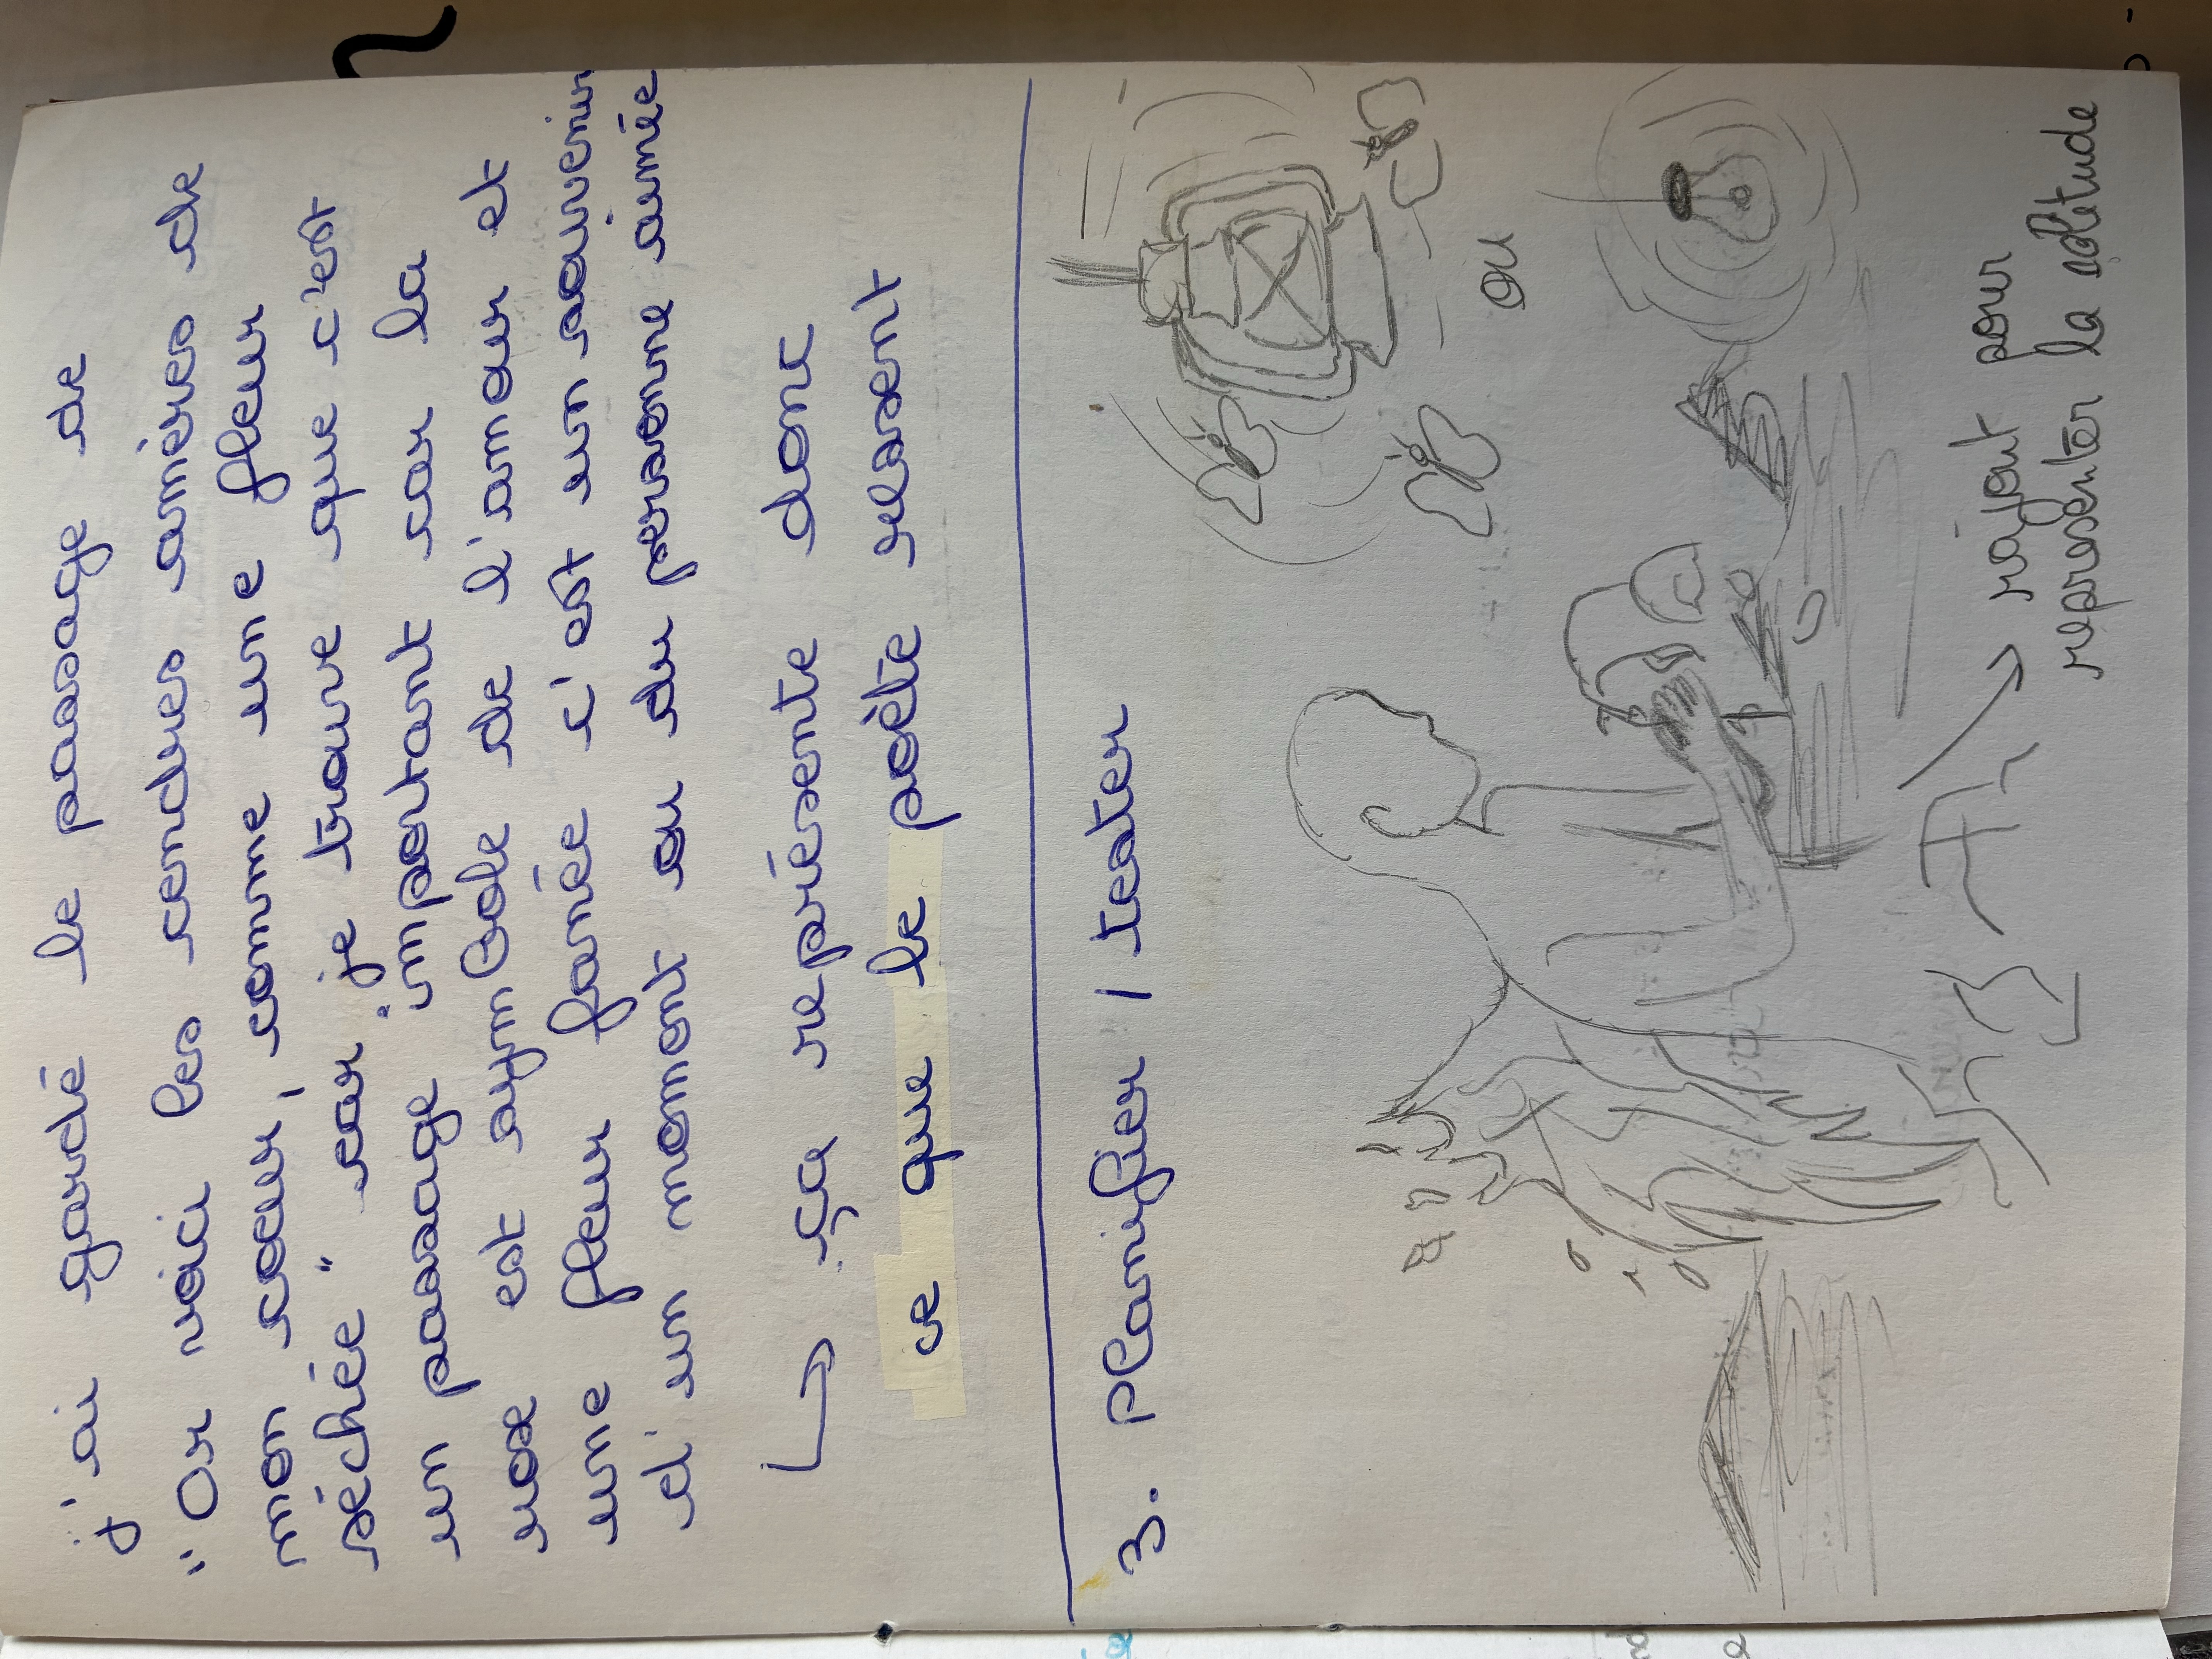 j'ai gardé le passage de
"Or voici les cendres amères de
mon cœur, comme une fleur
séchée" car je trouve que c'est
un passage important car la
rose est symbole de l'amour et
une fleur fanée c'est un souvenir
d'un moment ou du personne aimée
↳ ça représente donc
ce que le poète ressent
3. Planifier / tester
ou
→ rajout pour
représenter la solitude